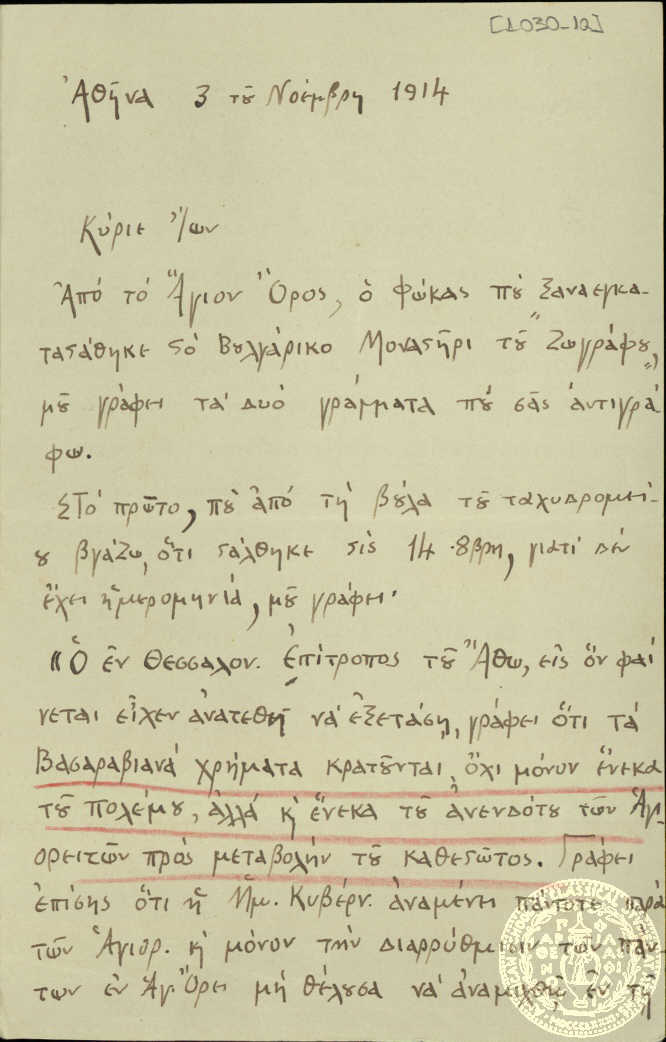 [1030-12]
Ἀθῆνα 3 τοῦ Νοέμβρη 1914
Κύριε Ἴων
Ἀπό τό Ἅγιον Ὄρος, ὁ Φώκας πού ξαναεγκα-
ταστάθηκε στό Βουλγάρικο Μοναστῆρι τοῦ "Ζωγράφου",
μοῦ γράφει τά δυό γράμματα πού σᾶς ἀντιγρά-
φω.
Στό πρῶτο, πού ἀπό τή βούλα τοῦ ταχυδρομεί-
ου βγάζω, ὅτι στάλθηκε στίς 14 8βρη, γιατί δέν
ἔχει ἡμερομηνία, μοῦ γράφει·
"Ὁ ἐν Θεσσαλον. Ἐπίτροπος τοῦ Ἄθω, εἰς ὅν φαί
νεται εἶχεν ἀνατεθῆ νά ἐξετάση, γράφει ὅτι τά
Βασαραβιανά χρήματα κρατοῦνται ὄχι μόνον ἕνεκα
τοῦ πολέμου, ἀλλά κ' ἕνεκα τοῦ ἀνενδότου τῶν Ἁγι-
ορειτῶν πρός μεταβολήν τοῦ καθεστῶτος. Γράφει
ἐπίσης ὅτι ἡ Ἡμ. Κυβέρν. ἀναμένει πάντοτε παρά
τῶν Ἁγιορ. κ' μόνον τήν διαρρύθμισιν τῶν πάν-
των ἐν Ἁγ. Ὄρει μή θέλουσα νά ἀναμιχθῆ ἐν τῆ